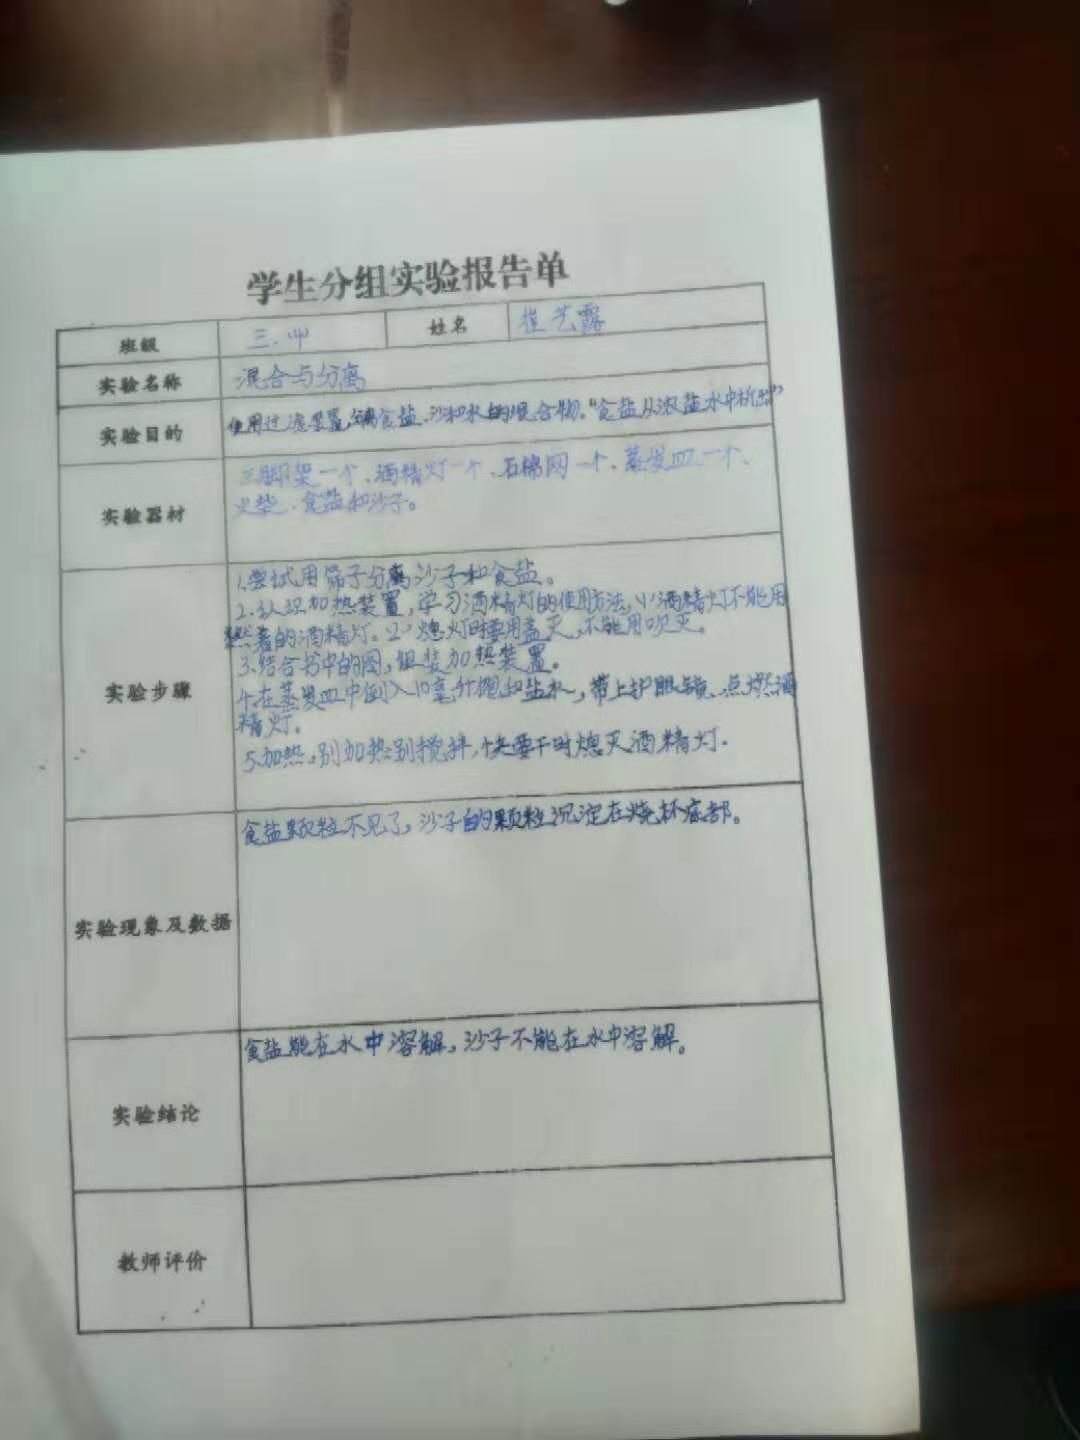 学生分组实验报告单
班级 三.(4) 姓名 崔艺露
实验名称 混合与分离
实验目的 使用过滤装置分离食盐、沙和水的混合物。“食盐从浓盐水中析出”
实验器材 三脚架一个、酒精灯一个、石棉网一个、蒸发皿一个、
火柴、食盐和沙子。
实验步骤
1.尝试用筛子分离沙子和食盐。
2.认识加热装置,学习酒精灯的使用方法,(1)酒精灯不能用
燃着的酒精灯。(2)熄灯时要用盖灭,不能用吹灭。
3.结合书中的图,组装加热装置。
4.在蒸发皿中倒入10毫升饱和盐水,带上护眼镜、点燃酒
精灯。
5.加热,别加热别搅拌,快要干时熄灭酒精灯.
实验现象及数据 食盐颗粒不见了,沙子的颗粒沉淀在烧杯底部。
实验结论 食盐能在水中溶解,沙子不能在水中溶解。
教师评价